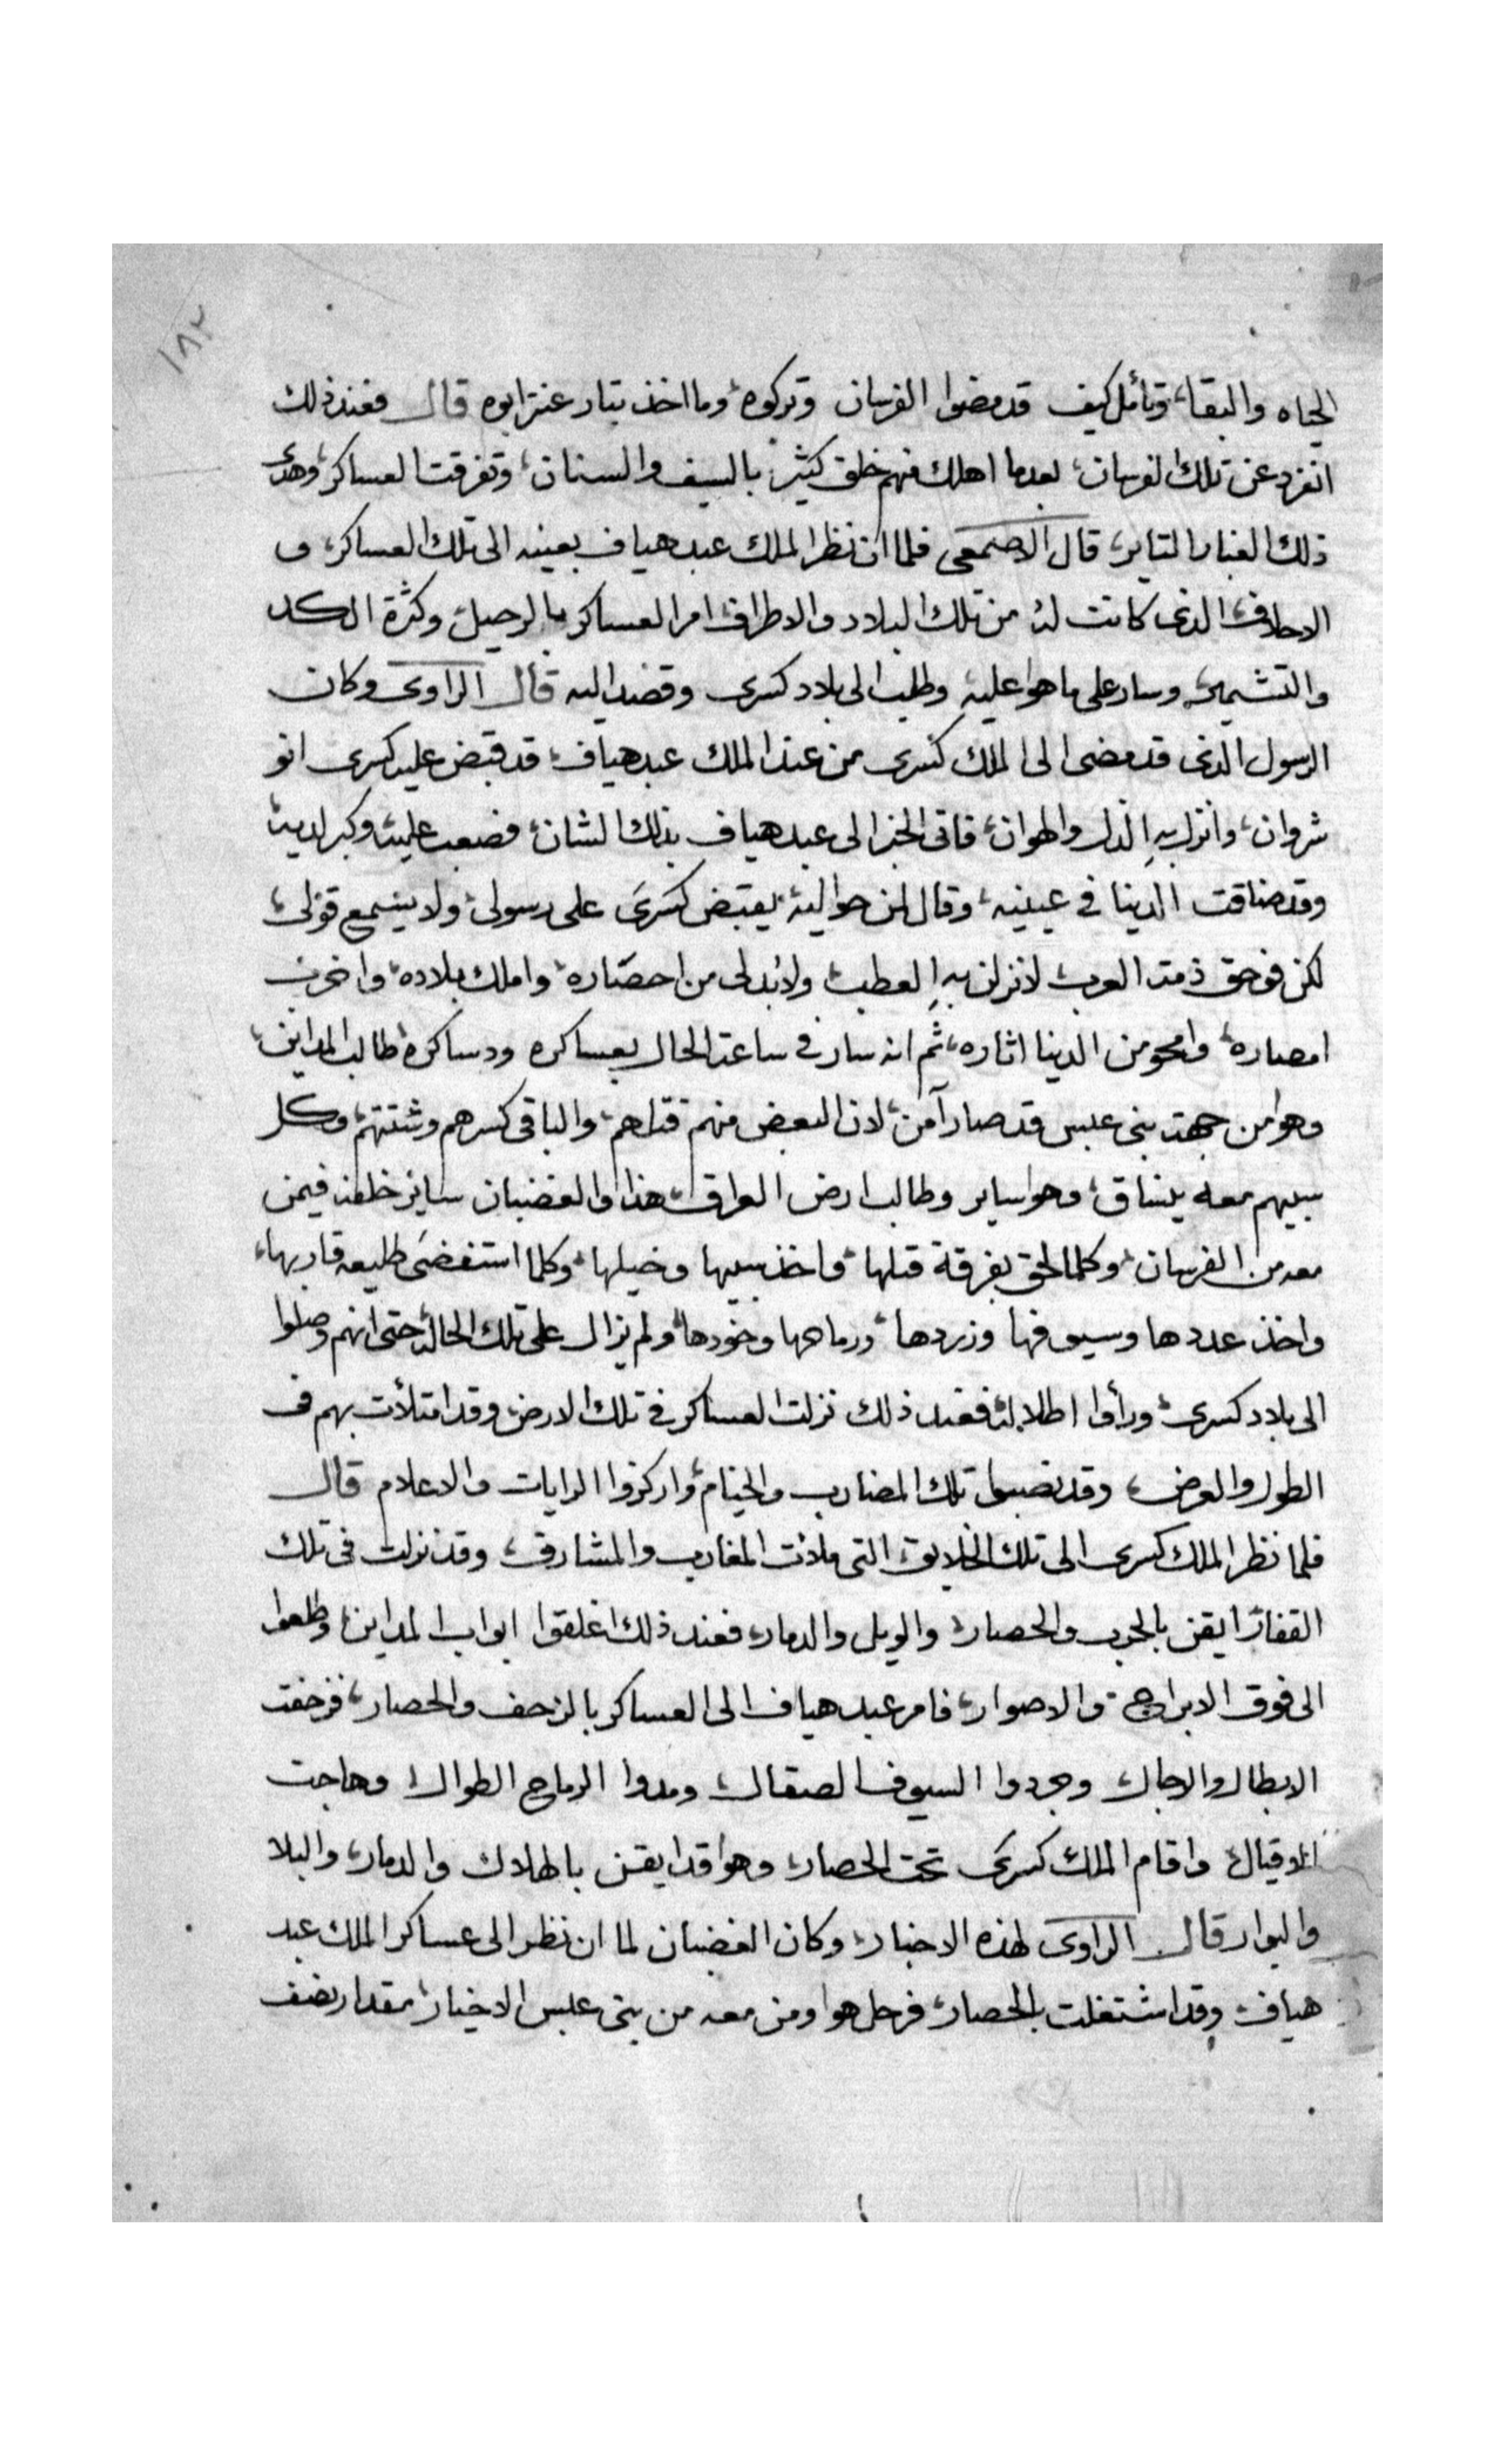 ١٨٢
الحياه والبقا، وتأمل كيف قد مضوا الفرسان وتركوه، وما اخذ بتار عنتر ابوه قال فعند ذلك
انفرد عن تلك الفرسان، بعدما اهلك منهم خلق كثير، بالسيف والسنان، وتفرقت العساكر، وهدى
ذلك الغبار التاير، قال الاصمعى فلما ان نظر الملك عبد هياف بعينيه الى تلك العساكر، و
الاحلاف، الذى كانت له من تلك البلاد والاطراف، امر العساكر بالرحيل، وكثرة الكد
والتشمير، وسار على ما هوا عليه، وطلب الى بلاد كسرى وقصد اليه قال الراوى وكان
الرسول الذى قد مضى الى الملك كسرى من عند الملك عبد هياف، قد قبض عليه كسرى انو
شروان، وانزل به الذل والهوان، فاتى الخبر الى عبد هياف بذلك الشان، فصعب عليه، وكبر لديه،
وقد ضاقت الدينا في عينيه، وقال لمن حواليه، يقبض كسرى على رسولى، ولا يسمع قولى،
لكن فوحق ذمت العرب، لانزلن به العطب، ولابد لى من احصاره، واملك بلاده، واخرب
امصاره، وامحو من الدينا اثاره، ثم انه سار في ساعة الحال بعساكره ودساكره، طالب المداين،
وهوا من جهت بنى عبس قد صار آمن، لان البعض منهم قتلهم، والباقى كسرهم وشتتهم، وكل
سبيهم معه ينساق، وهوا ساير وطالب ارض العراق، هذا والغضبان ساير خلفه فيمن
معه من الفرسان، وكلما لحق بفرقة قتلها، واخذ سبيها وخيلها، وكلما استفضى طليعه قاربها،
واخذ عددها وسيوفها وزردها، ورماحها وخودها، ولم يزال على تلك الحاله، حتى انهم وصلوا
الى بلاد كسرى، ورأوا اطلاله، فعند ذلك نزلت العساكر في تلك الارض، وقد امتلأت بهم فى
الطول والعرض، وقد نصبوا تلك المضارب والخيام، واركزوا الرايات والاعلام قال
فلما نظر الملك كسرى الى تلك الخلايق، التى ملائت المغارب والمشارق، وقد نزلت فى تلك
القفار، ايقن بالحرب والحصار، والويل والدمار، فعند ذلك اغلقوا ابواب المداين، وطلعوا
الى فوق الابراج، والاصوار، فامر عبد هياف الى العساكر بالزحف والحصار، فزحفت
الابطال والرجال، وجردوا السيوف الصقال، ومدوا الرماح الطوال، وهاجت
الاقيال، واقام الملك كسرى تحت الحصار، وهوا قد ايقن بالهلاك والدمار، والبلا
والبوار قال الراوى لهذه الاخبار، وكان الغضبان لما ان نظر الى عساكر الملك عبد
هياف، وقد اشتغلت بالحصار، فرحل هوا ومن معه من بنى عبس الاخيار، مقدار نصف